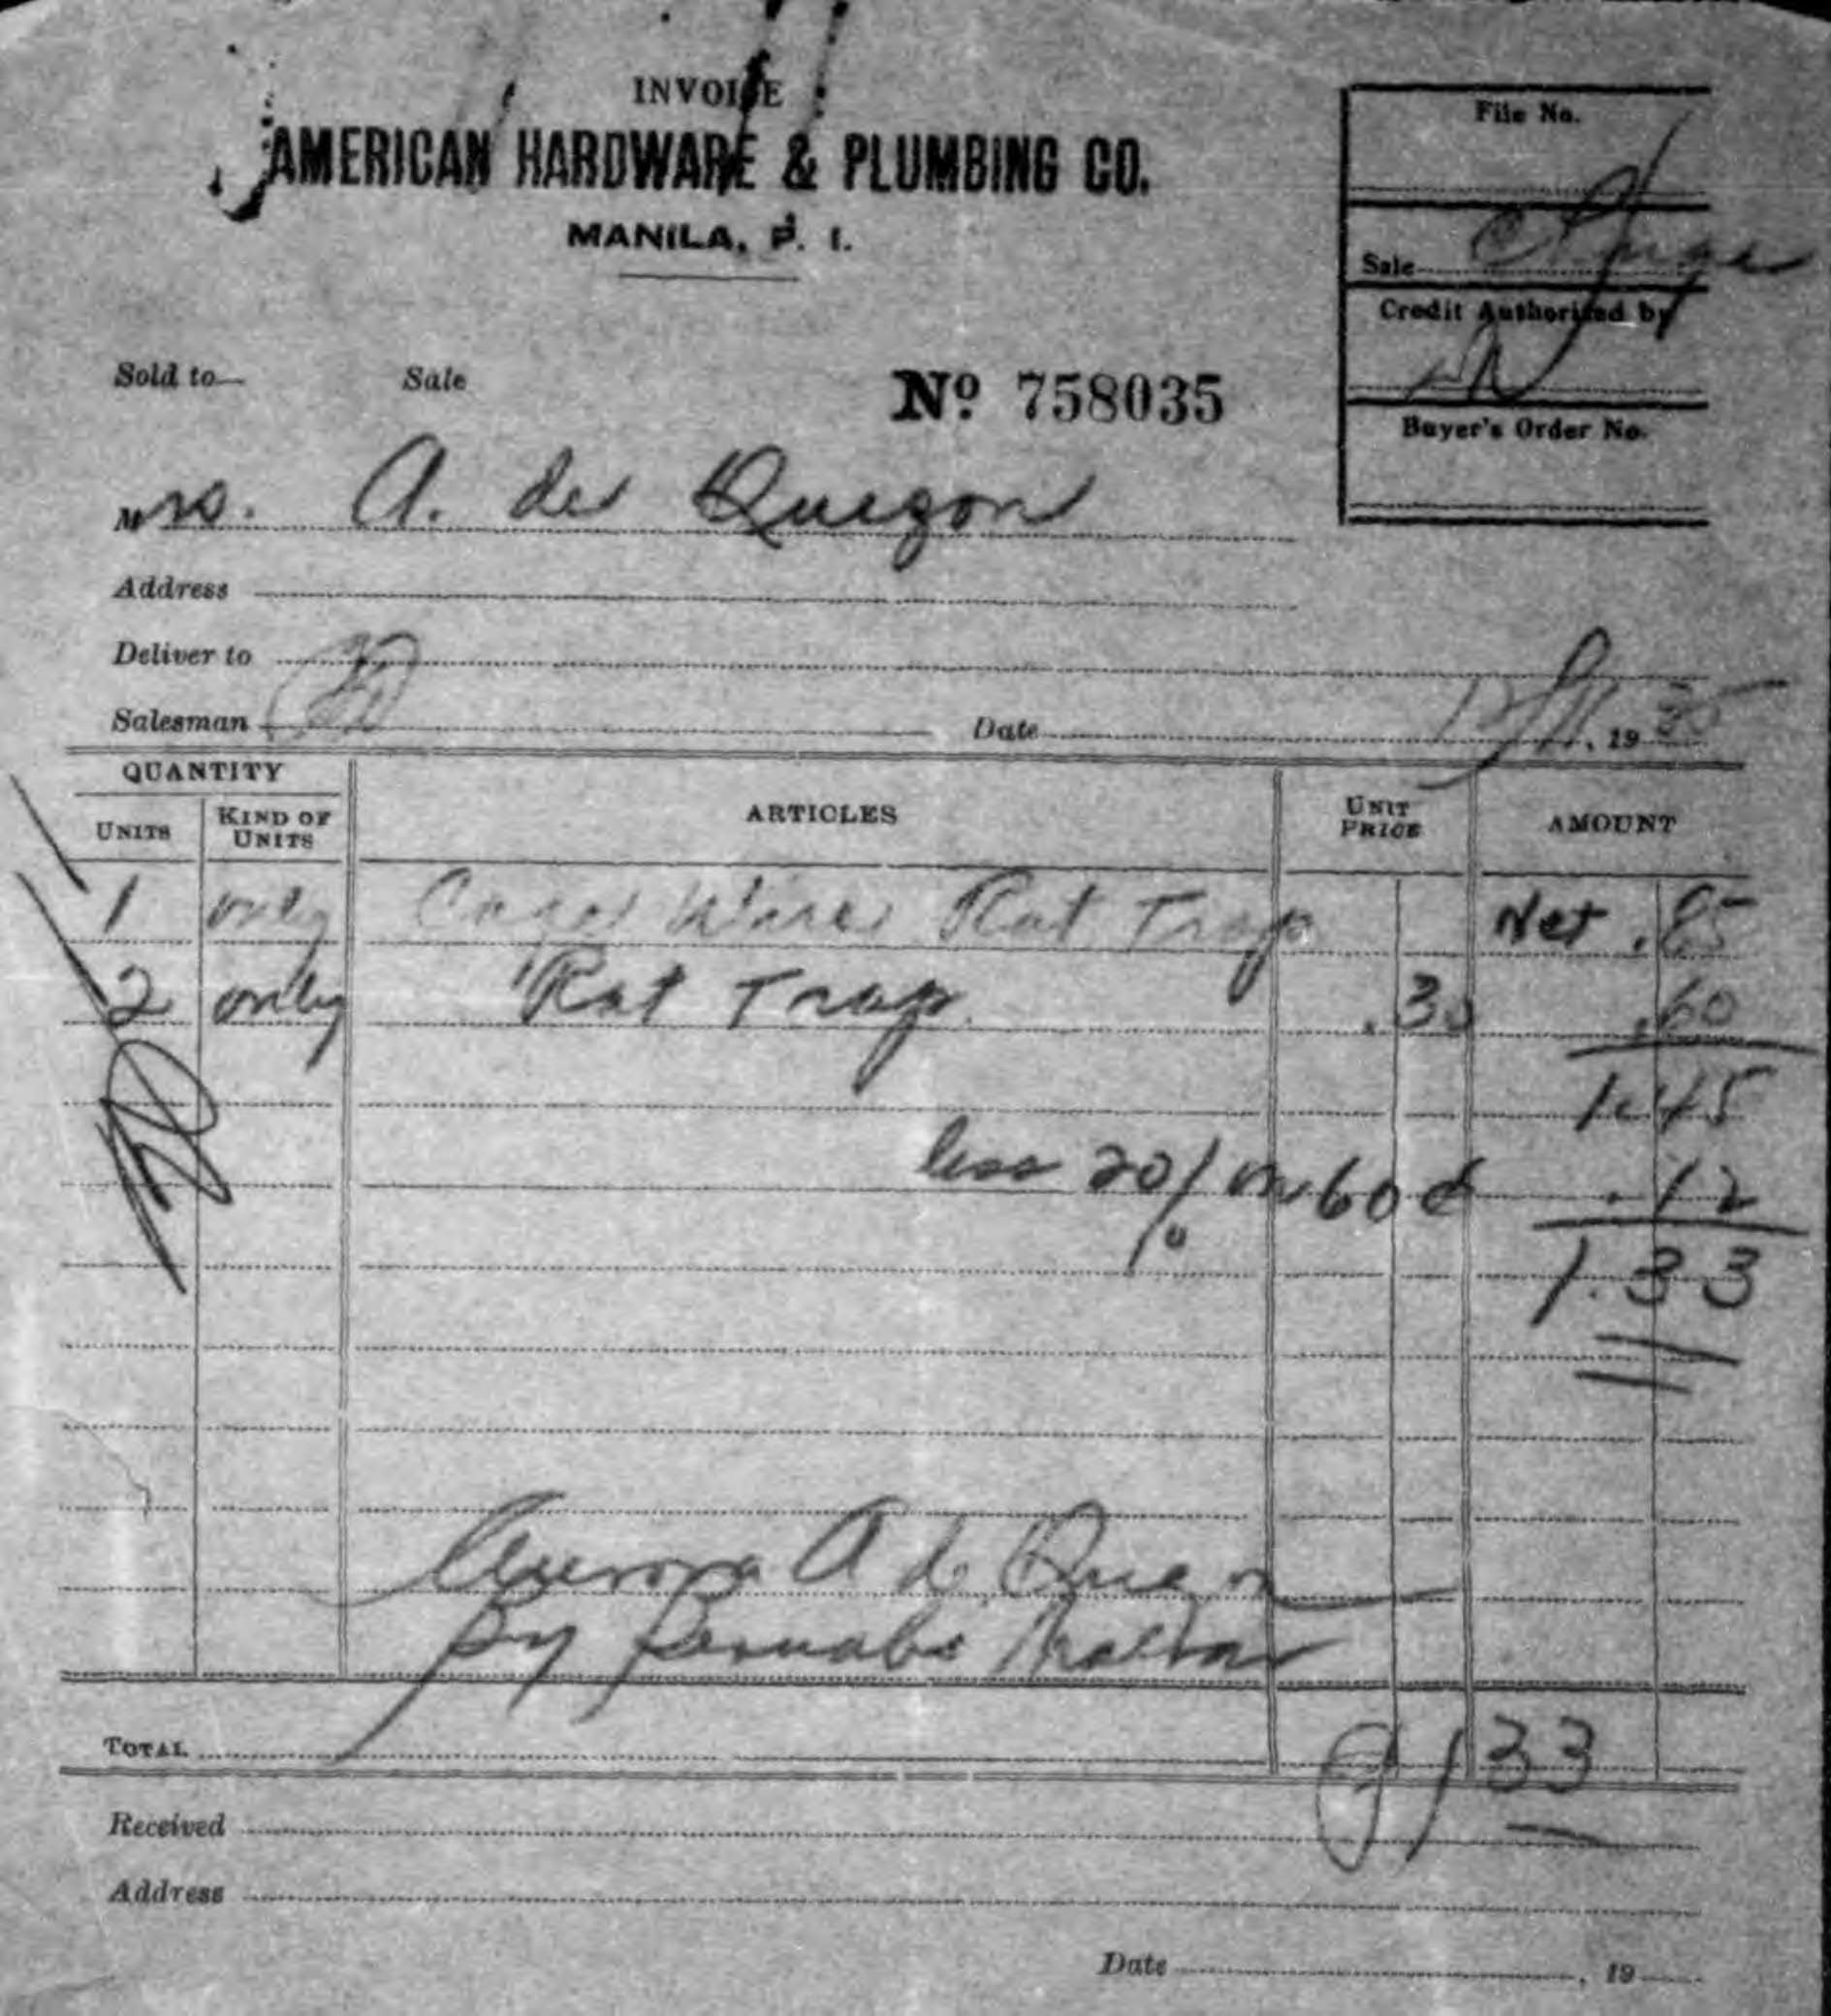 INVOICE
AMERICAN HARDWARE & PLUMBING CO.
MANILA, P. I.
File No.
Sale Charge
Credit Authorized by
Buyer's Order No.
Sold to— Sale Nº 758035
Mrs. A. de Quezon
Address
Deliver to
Salesman Date 12/11, 1935
QUANTITY
UNITS KIND OF UNITS ARTICLES UNIT PRICE AMOUNT
1 only Cage Wire Rat Trap Net .85
2 only Rat Trap .30 .60
1.45
less 20% on 60¢ .12
1.33
Aurora A de Quezon
By Bernabe
TOTAL 1 33
Received
Address
Date , 19